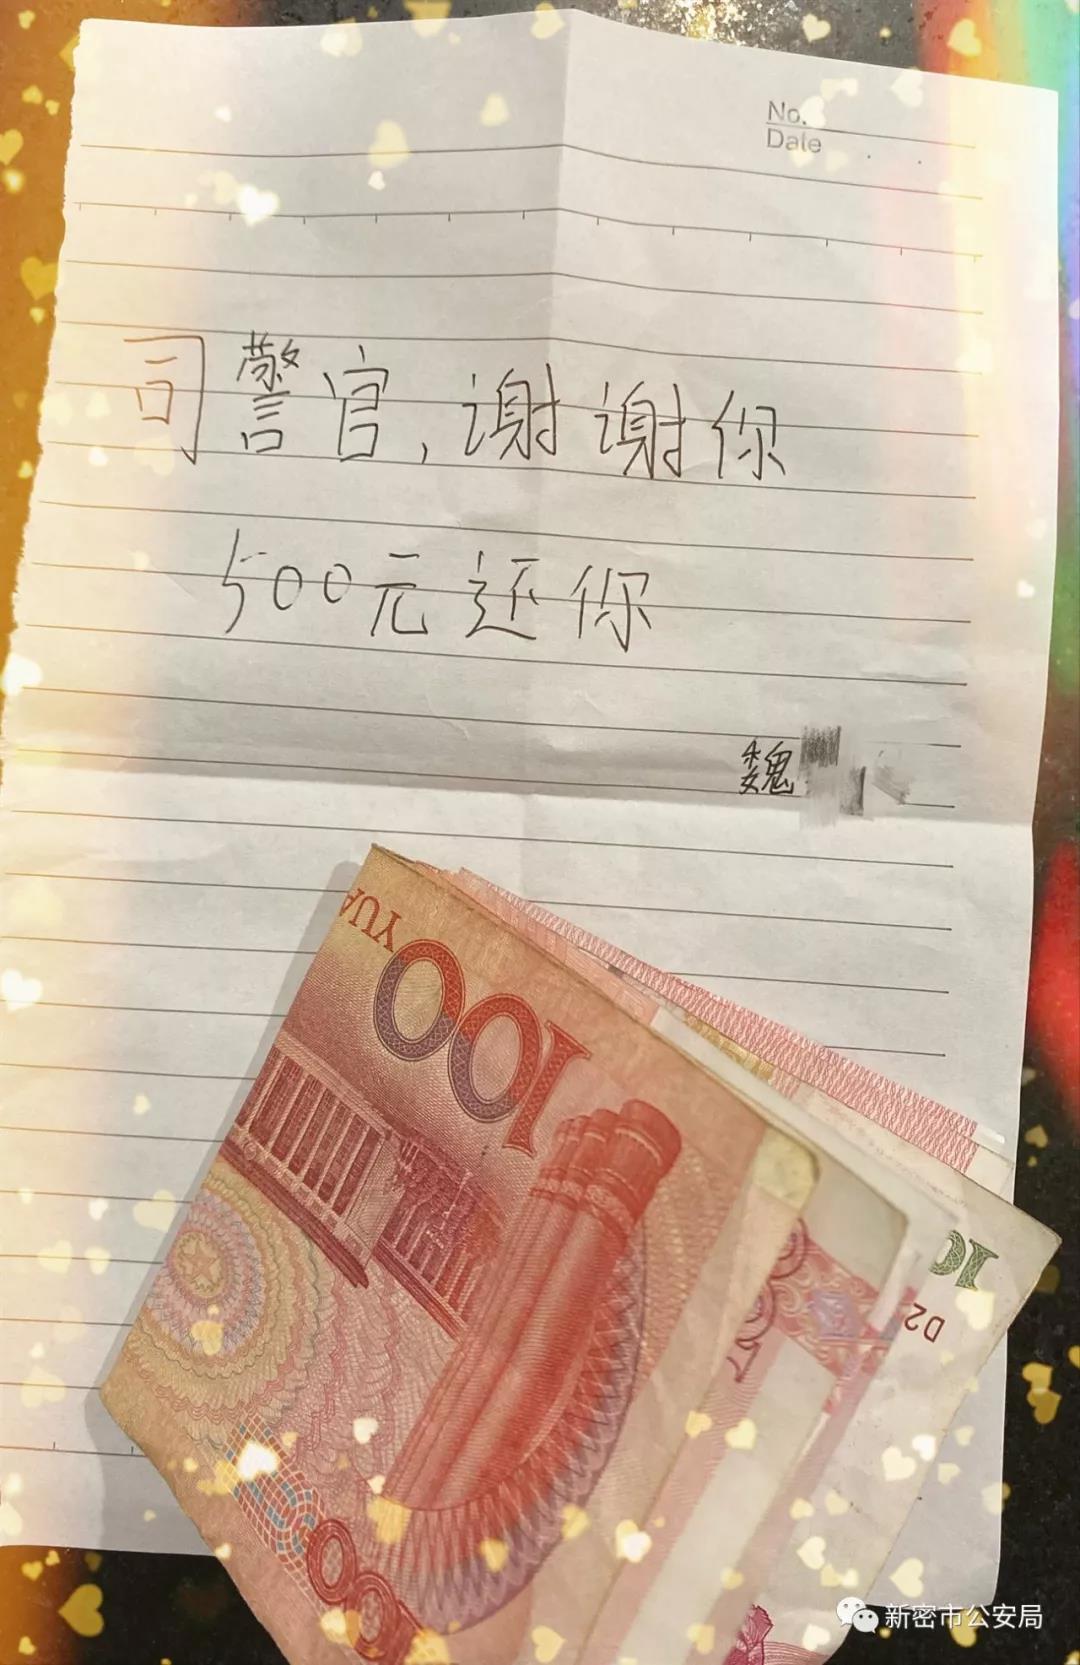 No.
Date
司警官，谢谢你
500元还你
魏
YUA
100
100
10
D2
新密市公安局